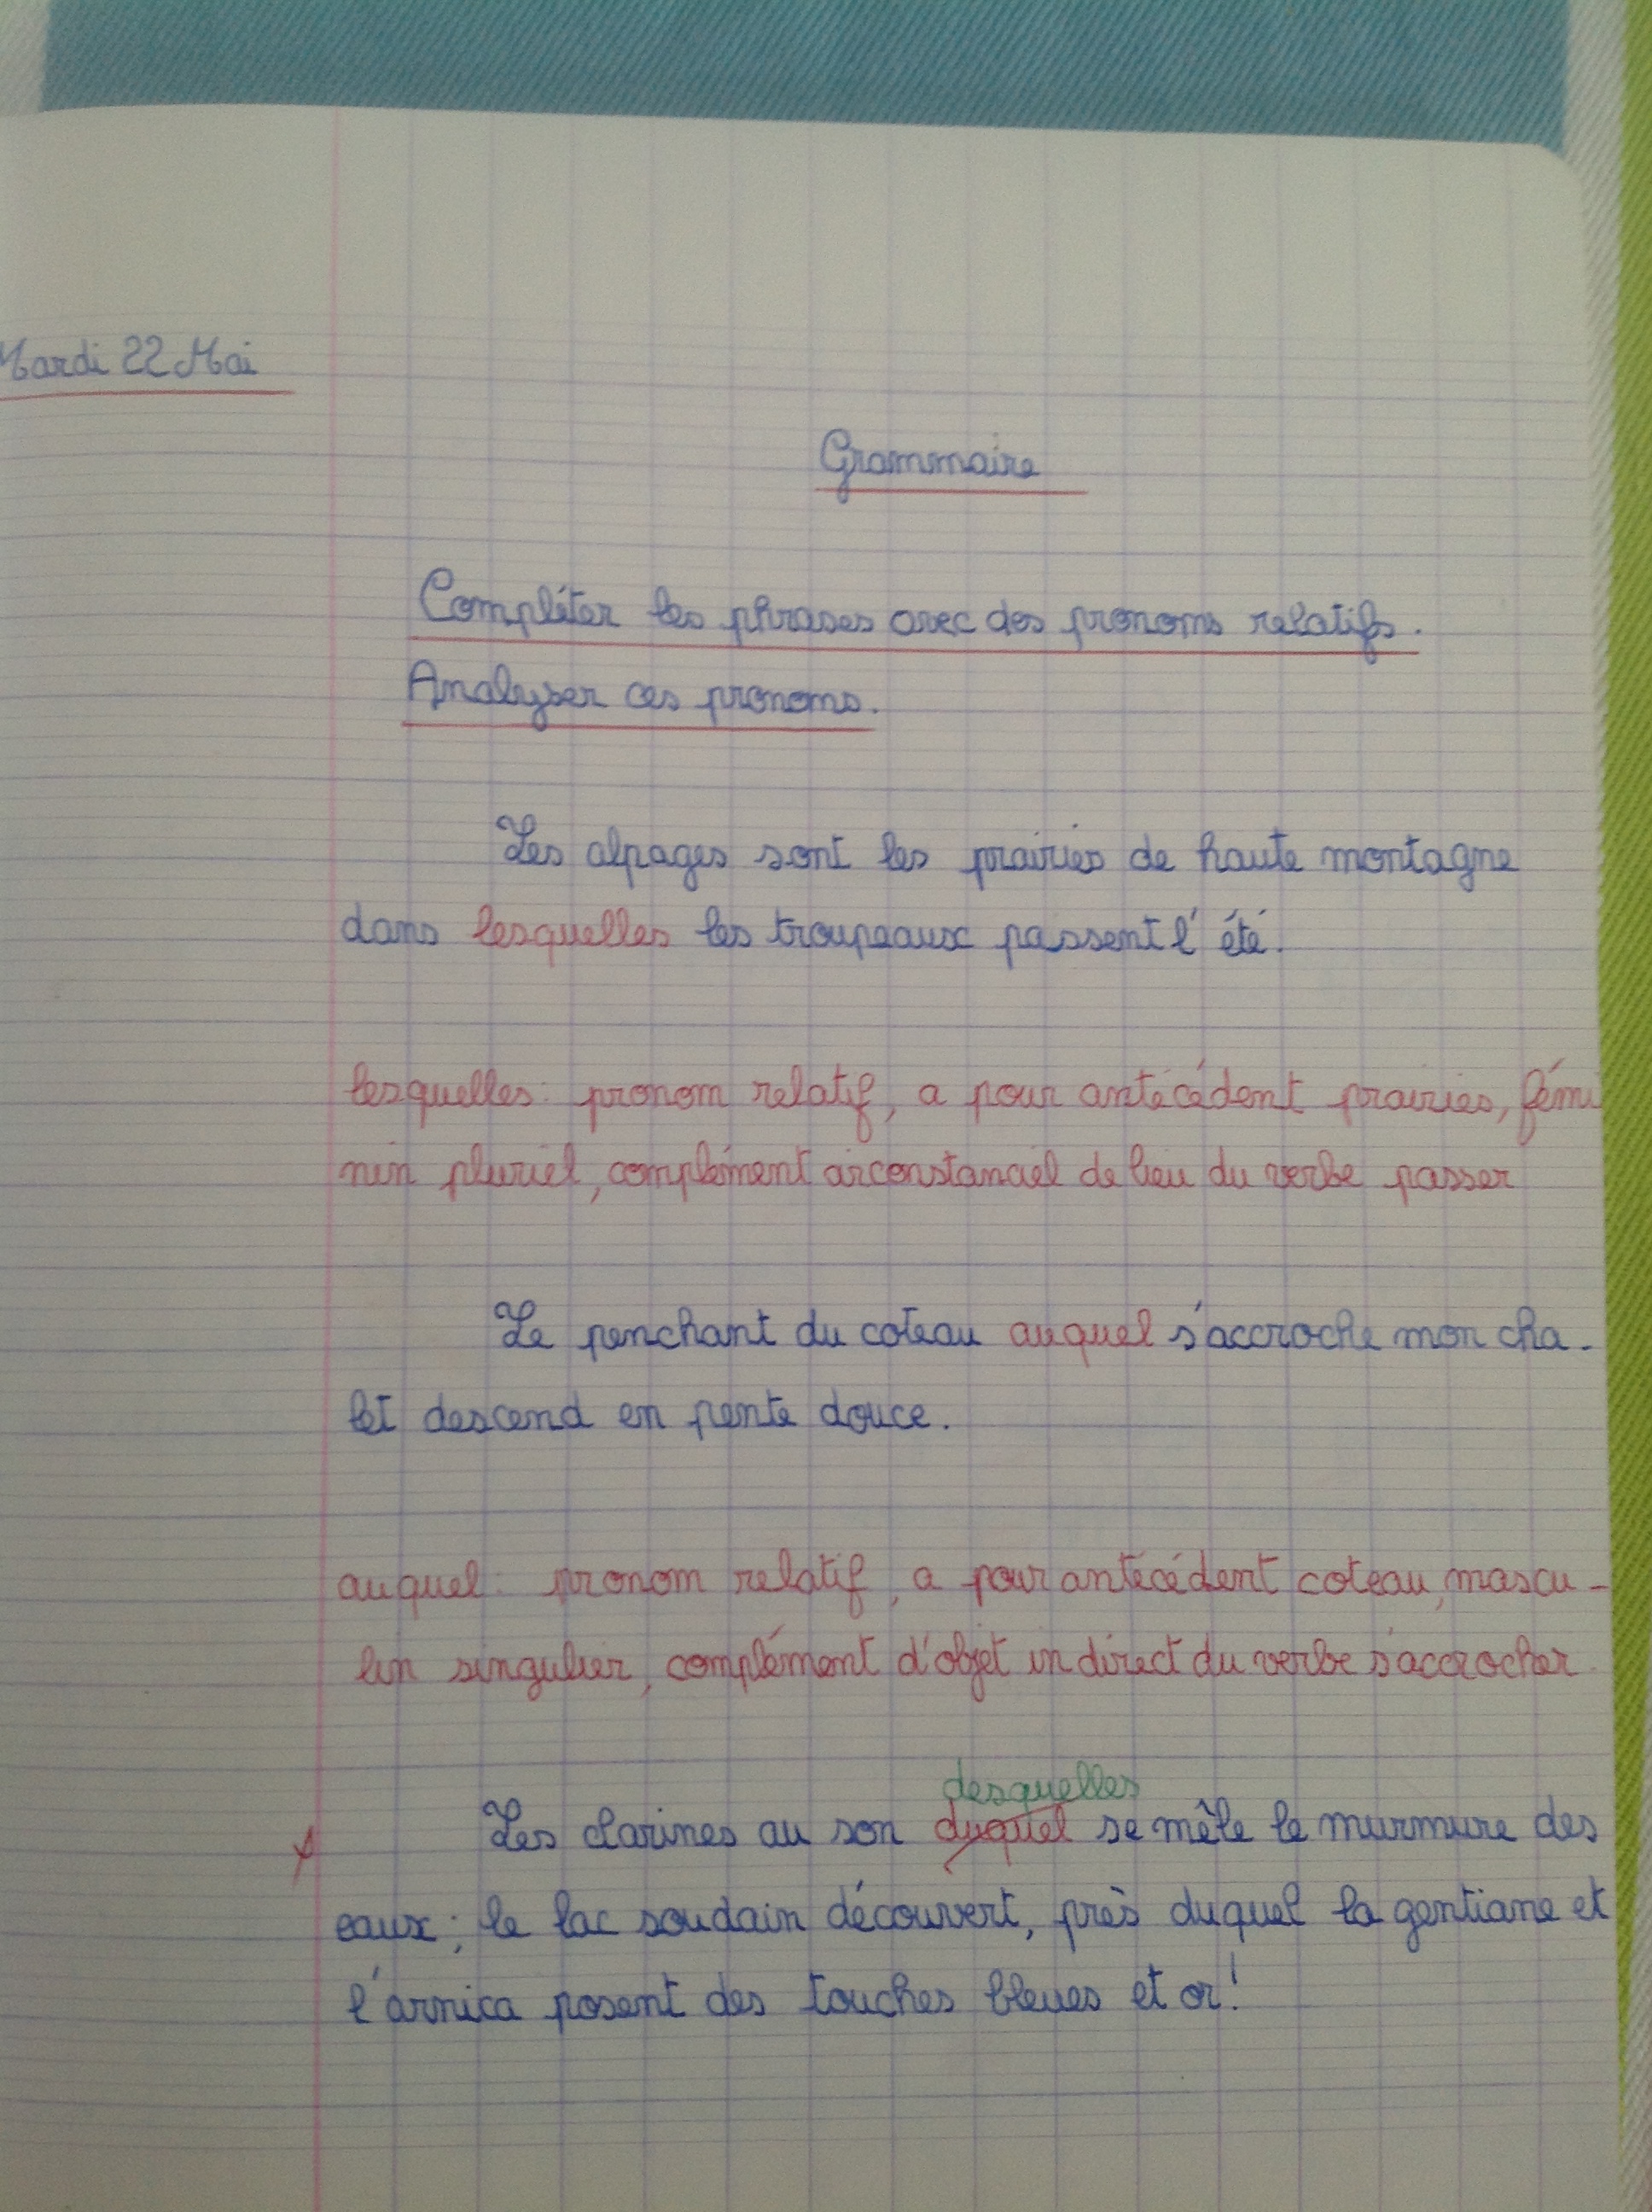 Mardi 22 Mai
Grammaire
Compléter les phrases avec des pronoms relatifs.
Analyser ces pronoms.
Les alpages sont les prairies de haute montagne
dans lesquelles les troupeaux passent l'été.
lesquelles: pronom relatif, a pour antécédent prairies, fémi
nin pluriel, complément circonstanciel de lieu du verbe passer
Le penchant du coteau auquel s'accroche mon cha-
let descend en pente douce.
auquel: pronom relatif, a pour antécédent coteau, mascu-
lin singulier, complément d'objet indirect du verbe s'accrocher.
desquelles
Les clarines au son duquel se mêle le murmure des
eaux; le lac soudain découvert, près duquel la gentiane et
l'arnica posent des touches bleues et or!